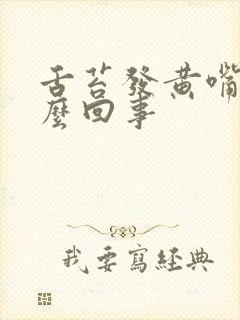 舌苔發黃嘴
麼回事
我要寫經典